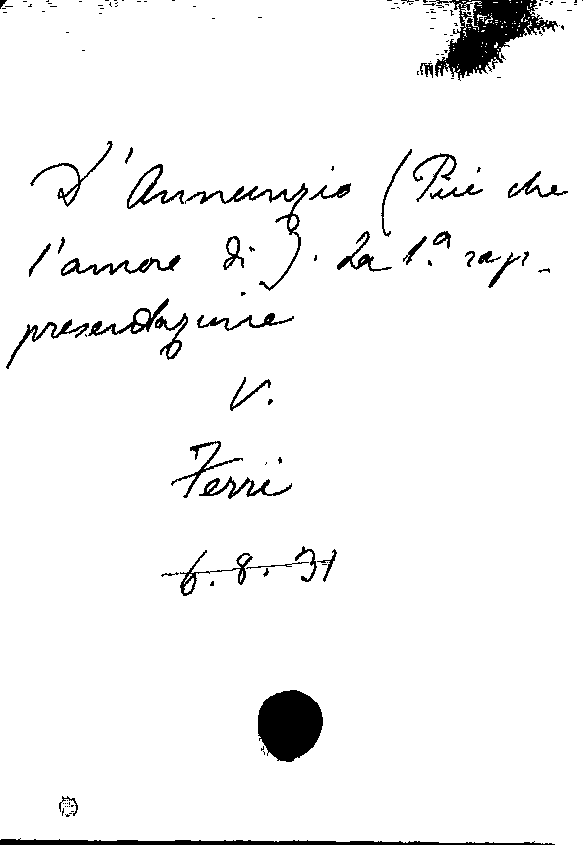 D'Annunzio (Più che
l'amore di). La 1.ª rap-
presentazione
V.
Ferri
6.8.31